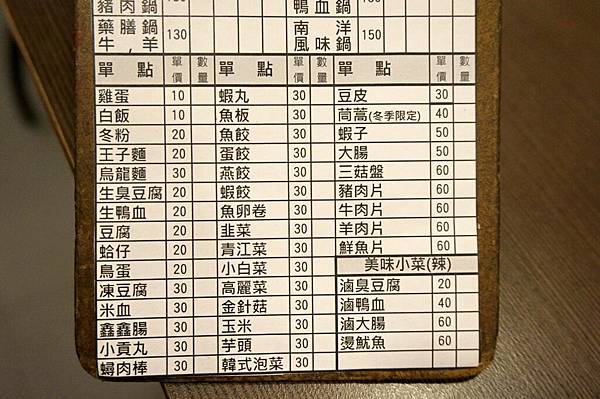 豬肉鍋 鴨血鍋
藥膳鍋 牛,羊 130 南洋風味鍋 150
單點 單價 數量 單點 單價 數量 單點 單價 數量
雞蛋 10 蝦丸 30 豆皮 30
白飯 10 魚板 30 茼蒿(冬季限定) 40
冬粉 20 魚餃 30 蝦子 50
王子麵 20 蛋餃 30 大腸 50
烏龍麵 30 燕餃 30 三菇盤 60
生臭豆腐 20 蝦餃 30 豬肉片 60
生鴨血 20 魚卵卷 30 牛肉片 60
豆腐 20 韭菜 30 羊肉片 60
蛤仔 20 青江菜 30 鮮魚片 60
鳥蛋 20 小白菜 30 美味小菜(辣)
凍豆腐 30 高麗菜 30 滷臭豆腐 20
米血 30 金針菇 30 滷鴨血 40
鑫鑫腸 30 玉米 30 滷大腸 60
小貢丸 30 芋頭 30 燙魷魚 60
蟳肉棒 30 韓式泡菜 30